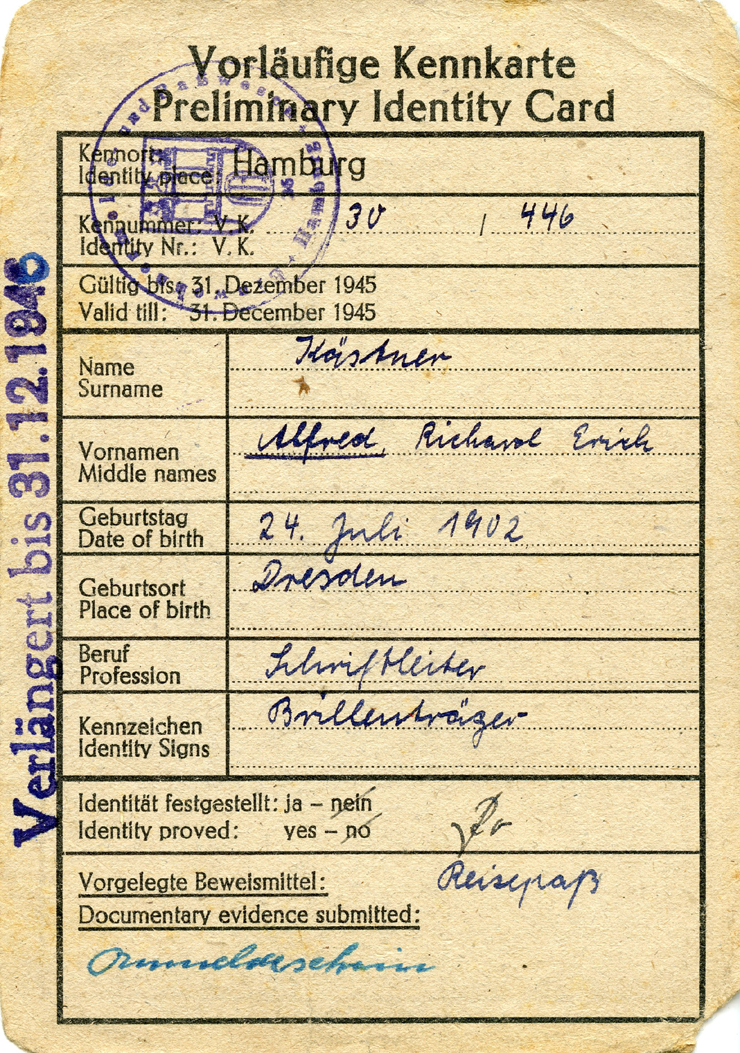 Vorläufige Kennkarte
Preliminary Identity Card
Kennort:
Identity place: Hamburg
Kennummer: V. K. 30 / 446
Identity Nr.: V. K.
Gültig bis: 31. Dezember 1945
Valid till: 31. December 1945
Name Kästner
Surname
Vornamen Alfred, Richard Erich
Middle names
Geburtstag 24. Juli 1902
Date of birth
Geburtsort Dresden
Place of birth
Beruf Schriftleiter
Profession
Kennzeichen Brillenträger
Identity Signs
Identität festgestellt: ja – nein
Identity proved: yes – no
Vorgelegte Beweismittel: Reisepaß
Documentary evidence submitted:
Anmeldeschein
Verlängert bis 31.12.1946